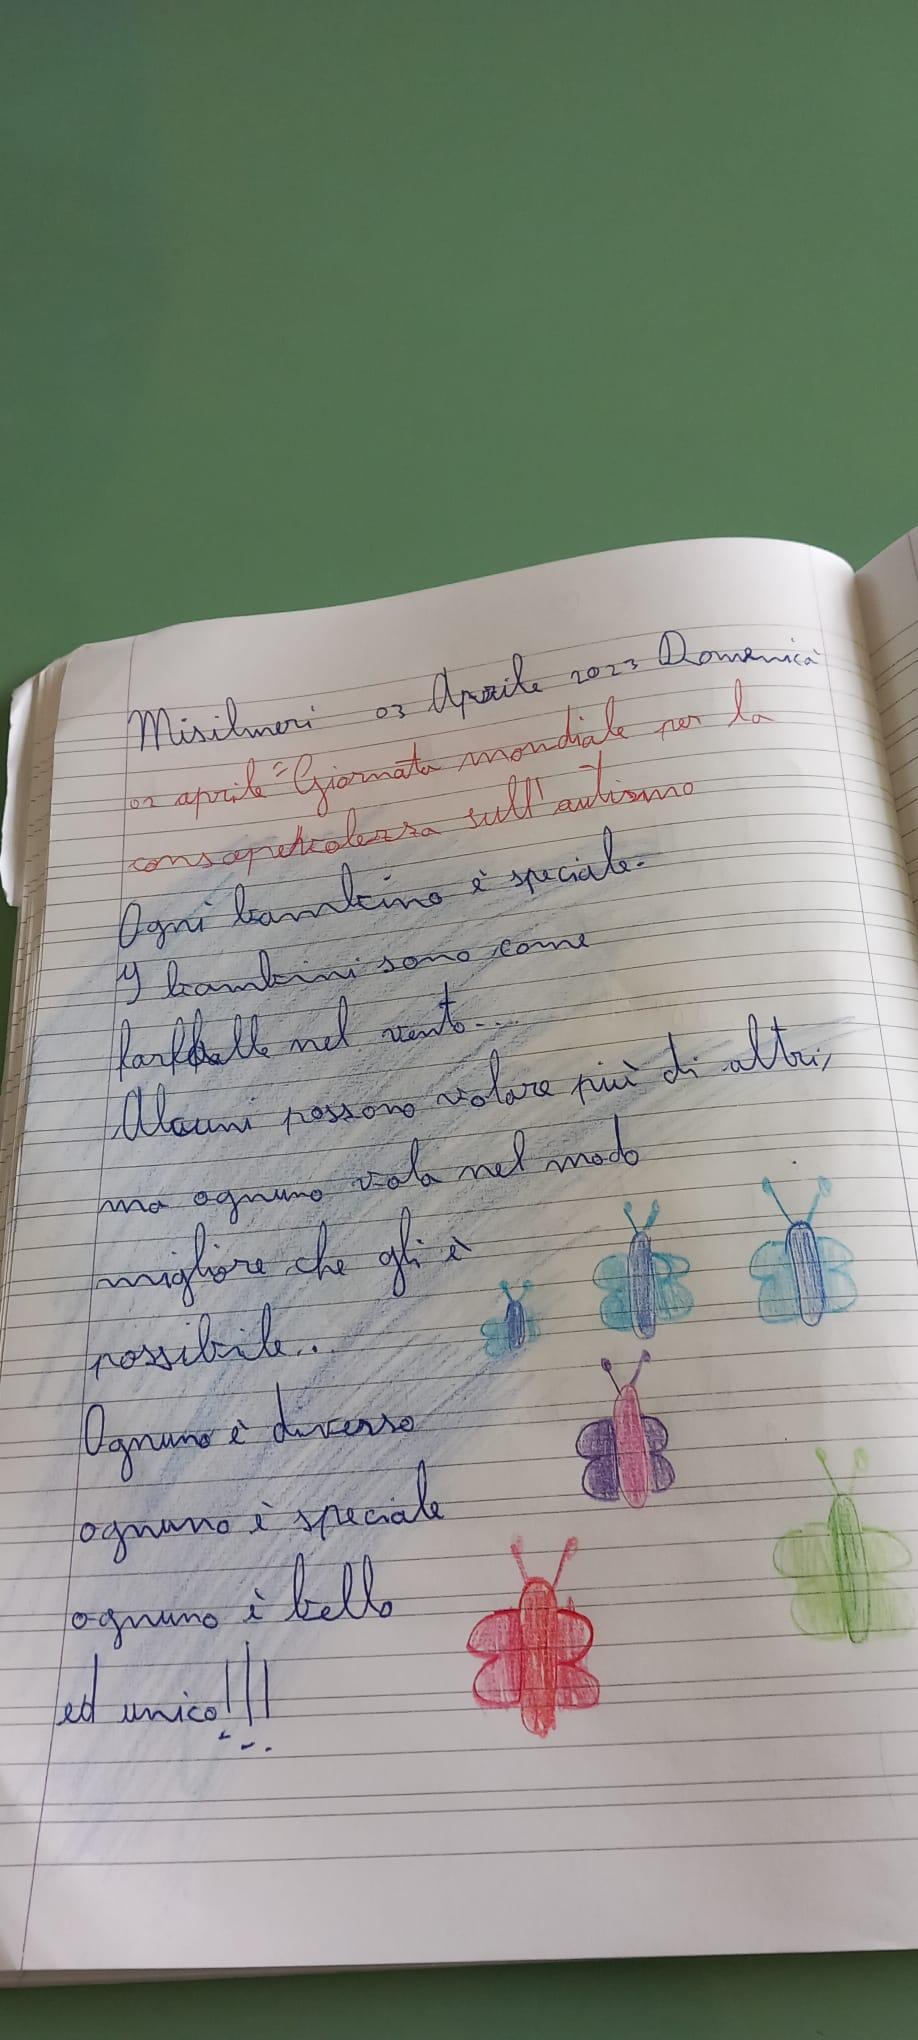 Misilmeri 03 Aprile 2023 Domenica
02 aprile "Giornata mondiale per la
consapevolezza sull'autismo
Ogni bambino è speciale.
I bambini sono come
farfalle nel vento...
Alcuni possono volare più di altri,
ma ognuno vola nel modo
migliore che gli è
possibile...
Ognuno è diverso
ognuno è speciale
ognuno è bello
ed unico!!!